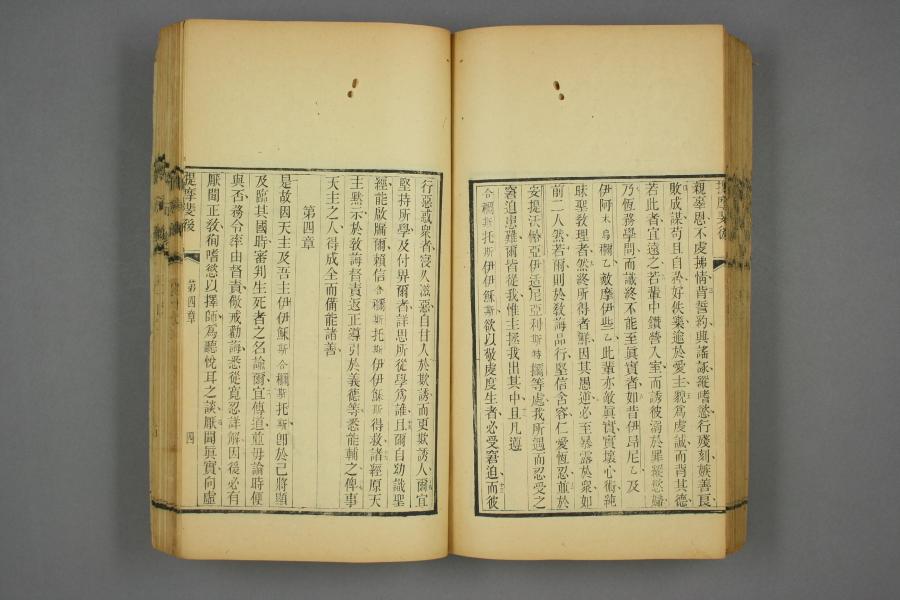 親辜恩不虔拂情背誓約興謠諑縱嗜慾行殘刻嫉善良
敗成謀苟且自矜好佚樂逾於愛主貌為虔誠而背其德
若此者宜遠之若輩中鑽營入室而誘彼溺於罪縱慾婦
乃恆務學問而識終不能至真實者如昔伊昂尼乙及
伊阿木烏櫚乙敵摩伊些乙此輩亦敵真實實壞心術純
昧聖教理者然終所得者鮮因其愚逆必至暴露於眾如
前二人然若爾則於教誨品行堅信舍容仁愛恆忍並於
妄提沃哈亞伊适尼亞利斯特攔等處我所遇而忍受之
窘迫患難爾皆從我惟主拯我出其中且凡遵
合穪斯托斯伊伊穌斯欲以敬虔度生者必受窘迫而彼
行惡或眾者寖久滋惡自甘人於欺誘而更欺誘人爾宜
堅持所學及付畀爾者詳思所從學為誰且爾自幼識聖
經能啟牖爾賴信合穪斯托斯伊伊穌斯得救諸經原天
主默示於教誨督責返正導引於義德等悉能輔之俾事
天主之人得成全而備能諸善
第四章
是故因天主及吾主伊伊穌斯合穪斯托斯即於己將顯
及臨其國時審判生死者之名諭爾宜傳道並毋論時便
與否務令率由督責儆戒勸誨悉從寬忍詳解因後必有
厭聞正教徇嗜慾以擇師為聽悅耳之談厭聞真實向虛
提摩斐後
第四章
四